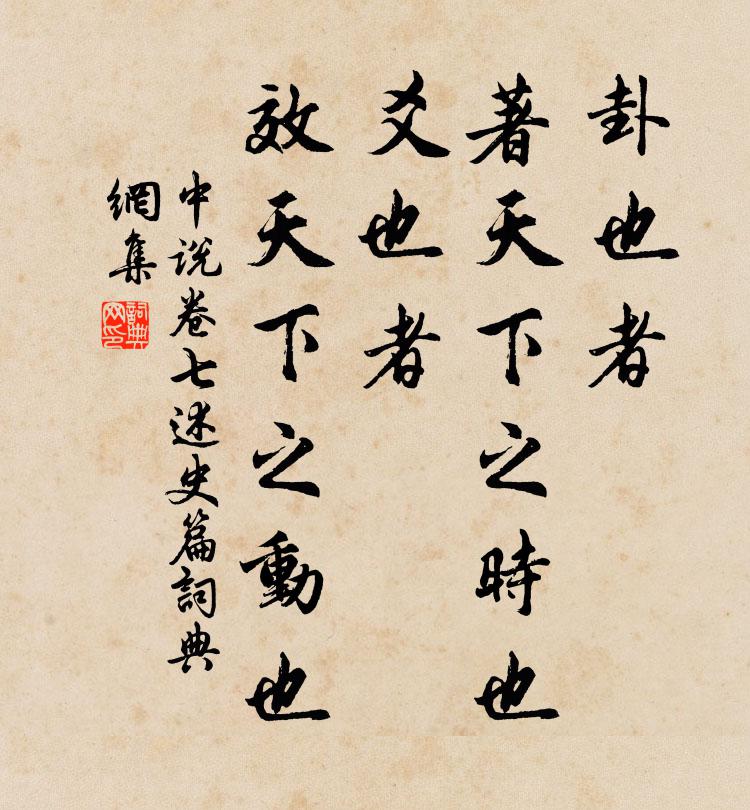 卦也者
著天下之時也
爻也者
效天下之動也
中說卷七述史篇詞典
網集
詞典
网印